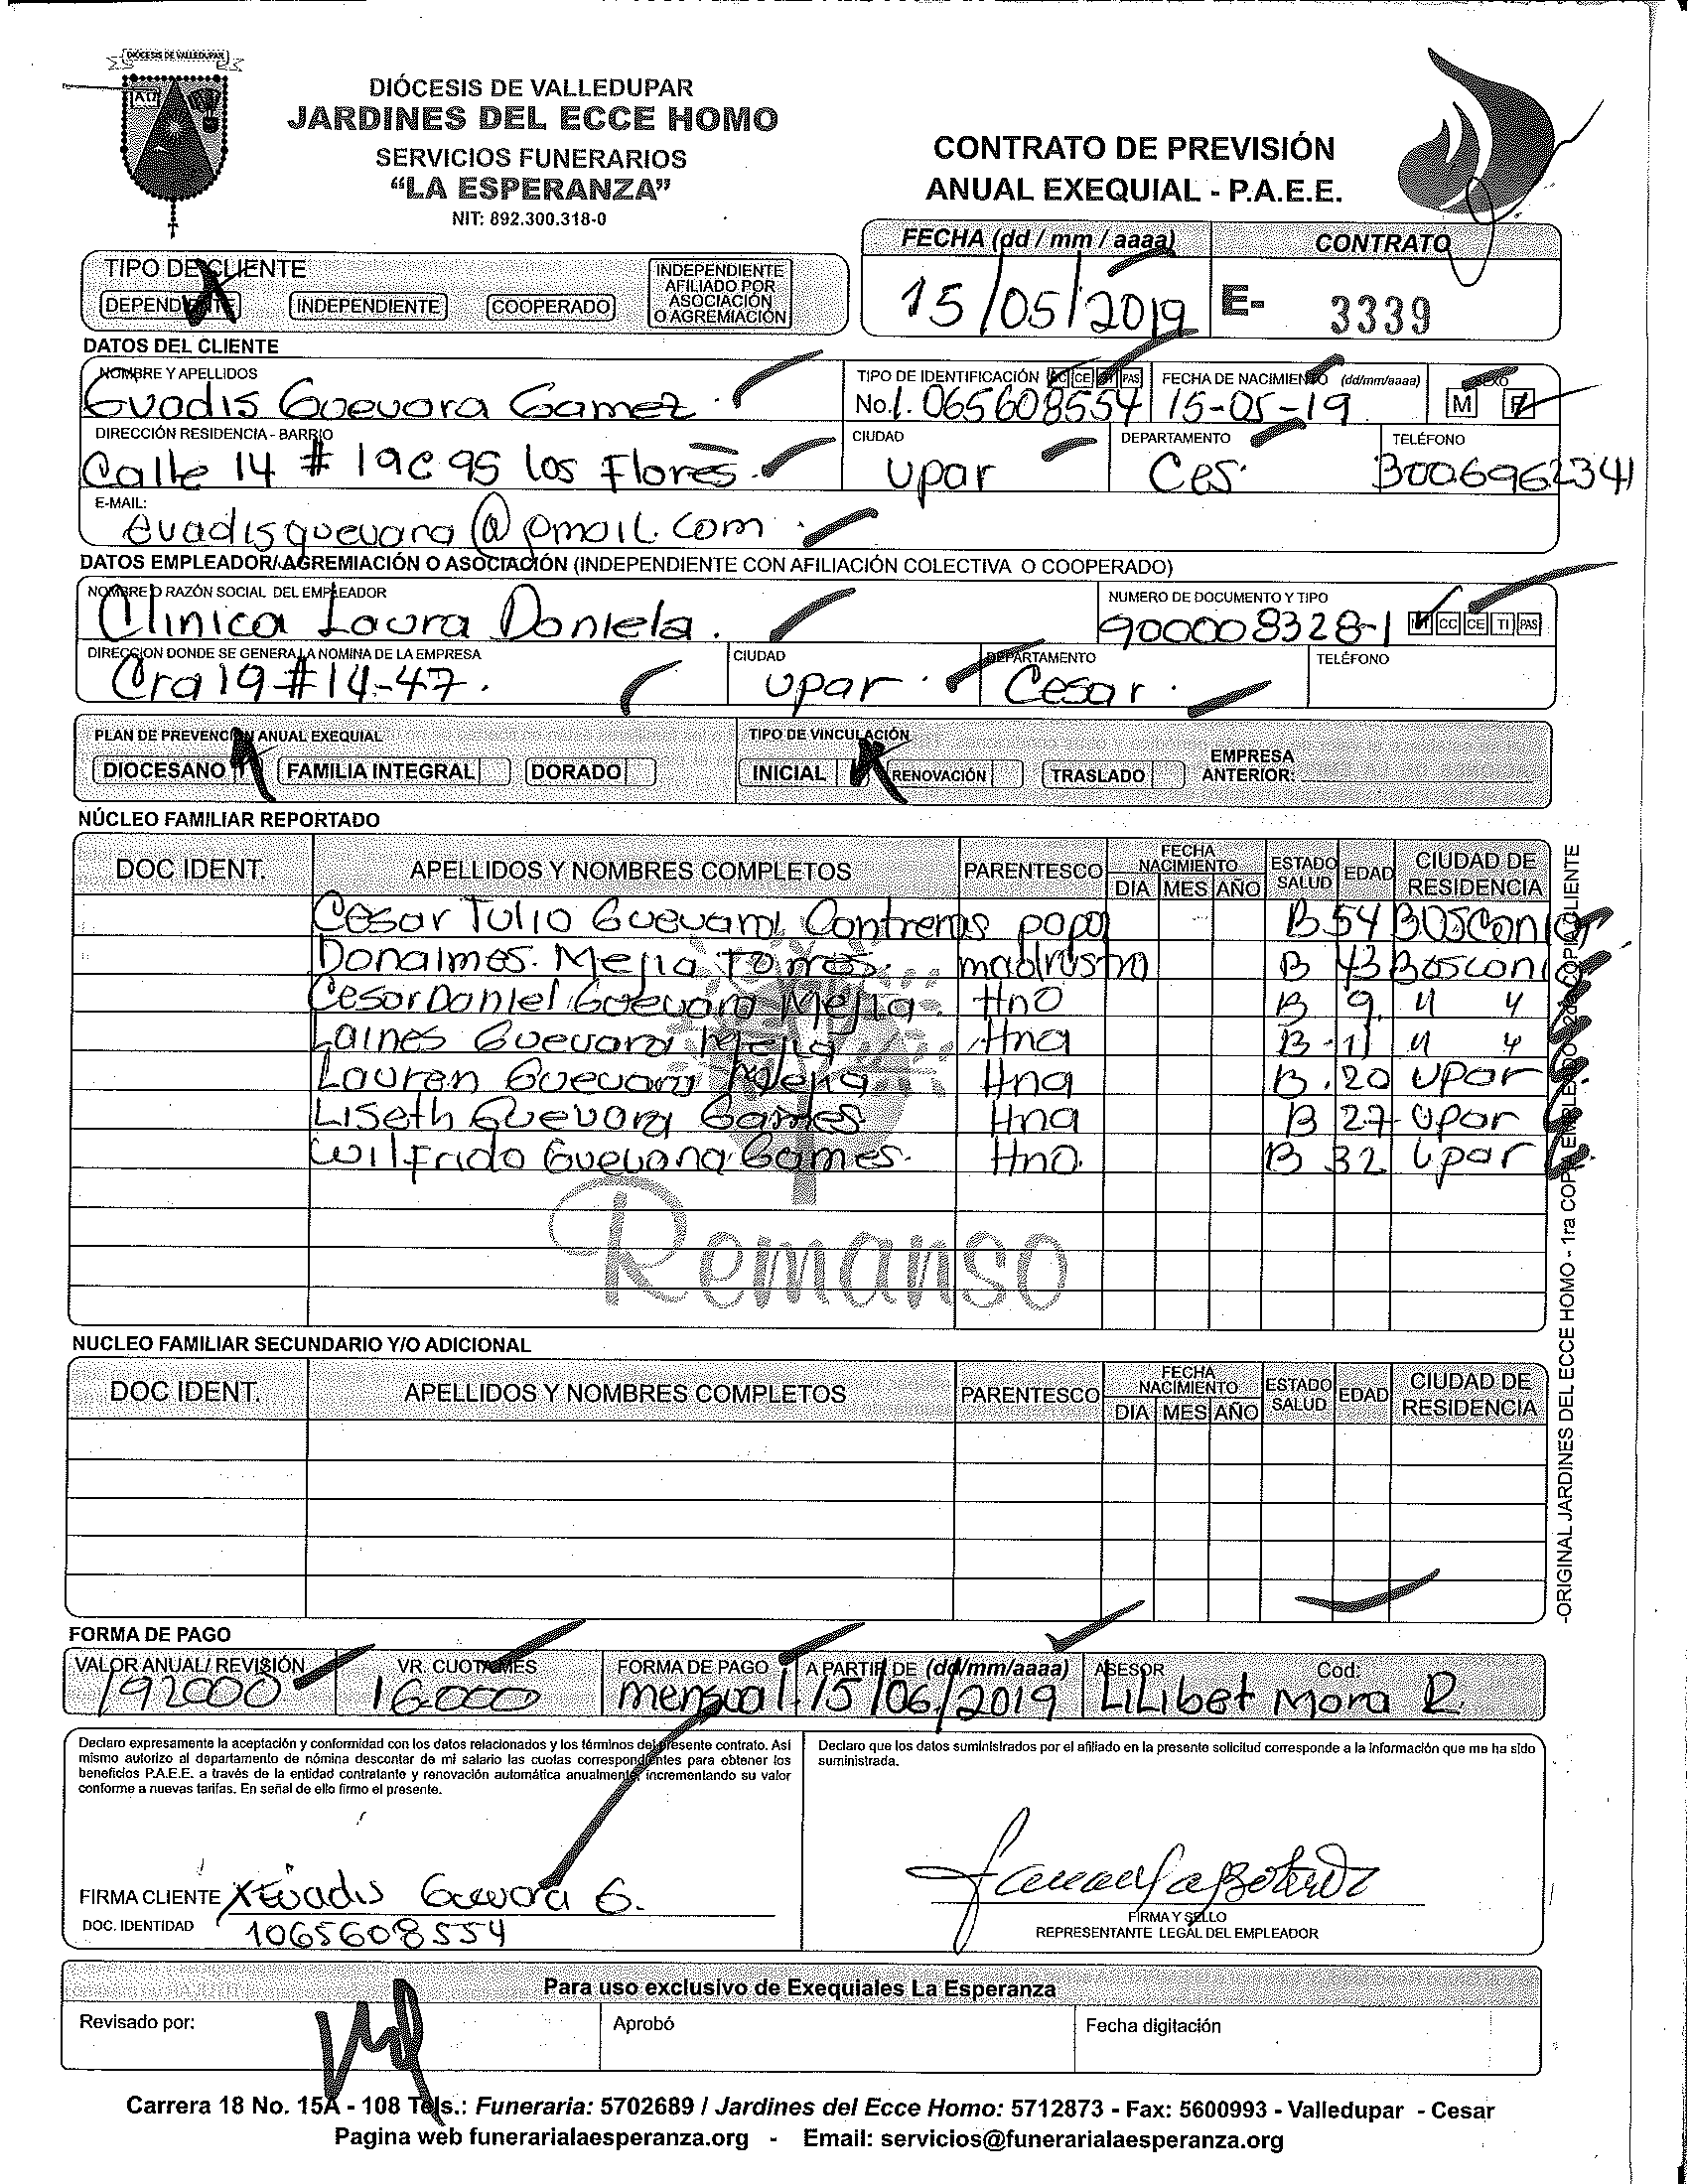 DIÓCESIS DE VALLEDUPAR
DIÓCESIS DE VALLEDUPAR
JARDINES DEL ECCE HOMO
SERVICIOS FUNERARIOS
“LA ESPERANZA”
NIT: 892.300.318-0
CONTRATO DE PREVISIÓN
ANUAL EXEQUIAL - P.A.E.E.
FECHA (dd / mm / aaaa) CONTRATO
15/05/2019 E- 3339
TIPO DE CLIENTE
DEPENDIENTE INDEPENDIENTE COOPERADO INDEPENDIENTE AFILIADO POR ASOCIACIÓN O AGREMIACIÓN
DATOS DEL CLIENTE
NOMBRE Y APELLIDOS TIPO DE IDENTIFICACIÓN CC CE TI PAS FECHA DE NACIMIENTO (dd/mm/aaaa) SEXO
Evadis Guevara Gamez. No. 1.065608554 15-05-19 M F
DIRECCIÓN RESIDENCIA - BARRIO CIUDAD DEPARTAMENTO TELÉFONO
Calle 14 # 19C 95 los Flores. Upar Ces. 3006962341
E-MAIL:
evadisguevara@gmail.com
DATOS EMPLEADOR/AGREMIACIÓN O ASOCIACIÓN (INDEPENDIENTE CON AFILIACIÓN COLECTIVA O COOPERADO)
NOMBRE O RAZÓN SOCIAL DEL EMPLEADOR NUMERO DE DOCUMENTO Y TIPO
Clinica Laura Daniela. 900008328-1 NIT CC CE TI PAS
DIRECCION DONDE SE GENERA LA NOMINA DE LA EMPRESA CIUDAD DEPARTAMENTO TELÉFONO
Cra 19 #14-47. Upar. Cesar.
PLAN DE PREVENCIÓN ANUAL EXEQUIAL TIPO DE VINCULACIÓN
DIOCESANO FAMILIA INTEGRAL DORADO INICIAL RENOVACIÓN TRASLADO EMPRESA ANTERIOR:
NÚCLEO FAMILIAR REPORTADO
DOC IDENT. APELLIDOS Y NOMBRES COMPLETOS PARENTESCO FECHA NACIMIENTO DIA MES AÑO ESTADO SALUD EDAD CIUDAD DE RESIDENCIA
Cesar Tulio Guevara Contreras papa B 54 Bosconia
Donaimes. Mejia Torres. madrastra B 43 Bosconia
Cesar Daniel Guevara Mejia. Hno B 9. 4 4
Laines Guevara Mejia Hna B 11 4 4
Lauren Guevara Mejia Hna B. 20 Upar
Liseth Guevara Games Hna B 27 Upar
Wilfrido Guevara Games. Hno. B 32 Upar
Remanso
NUCLEO FAMILIAR SECUNDARIO Y/O ADICIONAL
DOC IDENT. APELLIDOS Y NOMBRES COMPLETOS PARENTESCO FECHA NACIMIENTO DIA MES AÑO ESTADO SALUD EDAD CIUDAD DE RESIDENCIA
-ORIGINAL JARDINES DEL ECCE HOMO - 1ra COPIA EMPLEADO - 2da COPIA CLIENTE
FORMA DE PAGO
VALOR ANUAL/ REVISIÓN VR. CUOTA MES FORMA DE PAGO A PARTIR DE (dd/mm/aaaa) ASESOR Cod:
192000 16.000 mensual. 15/06/2019 Lilibet Mora R.
Declaro expresamente la aceptación y conformidad con los datos relacionados y los términos del presente contrato. Así
mismo autorizo al departamento de nómina descontar de mi salario las cuotas correspondientes para obtener los
beneficios P.A.E.E. a través de la entidad contratante y renovación automática anualmente, incrementando su valor
conforme a nuevas tarifas. En señal de ello firmo el presente.
Declaro que los datos suministrados por el afiliado en la presente solicitud corresponde a la información que me ha sido
suministrada.
FIRMA CLIENTE X Evadis Guevara G.
DOC. IDENTIDAD 1065608554
FIRMA Y SELLO
REPRESENTANTE LEGAL DEL EMPLEADOR
Para uso exclusivo de Exequiales La Esperanza
Revisado por: Aprobó Fecha digitación
Carrera 18 No. 15A - 108 Tels.: Funeraria: 5702689 / Jardines del Ecce Homo: 5712873 - Fax: 5600993 - Valledupar - Cesar
Pagina web funerarialaesperanza.org - Email: servicios@funerarialaesperanza.org